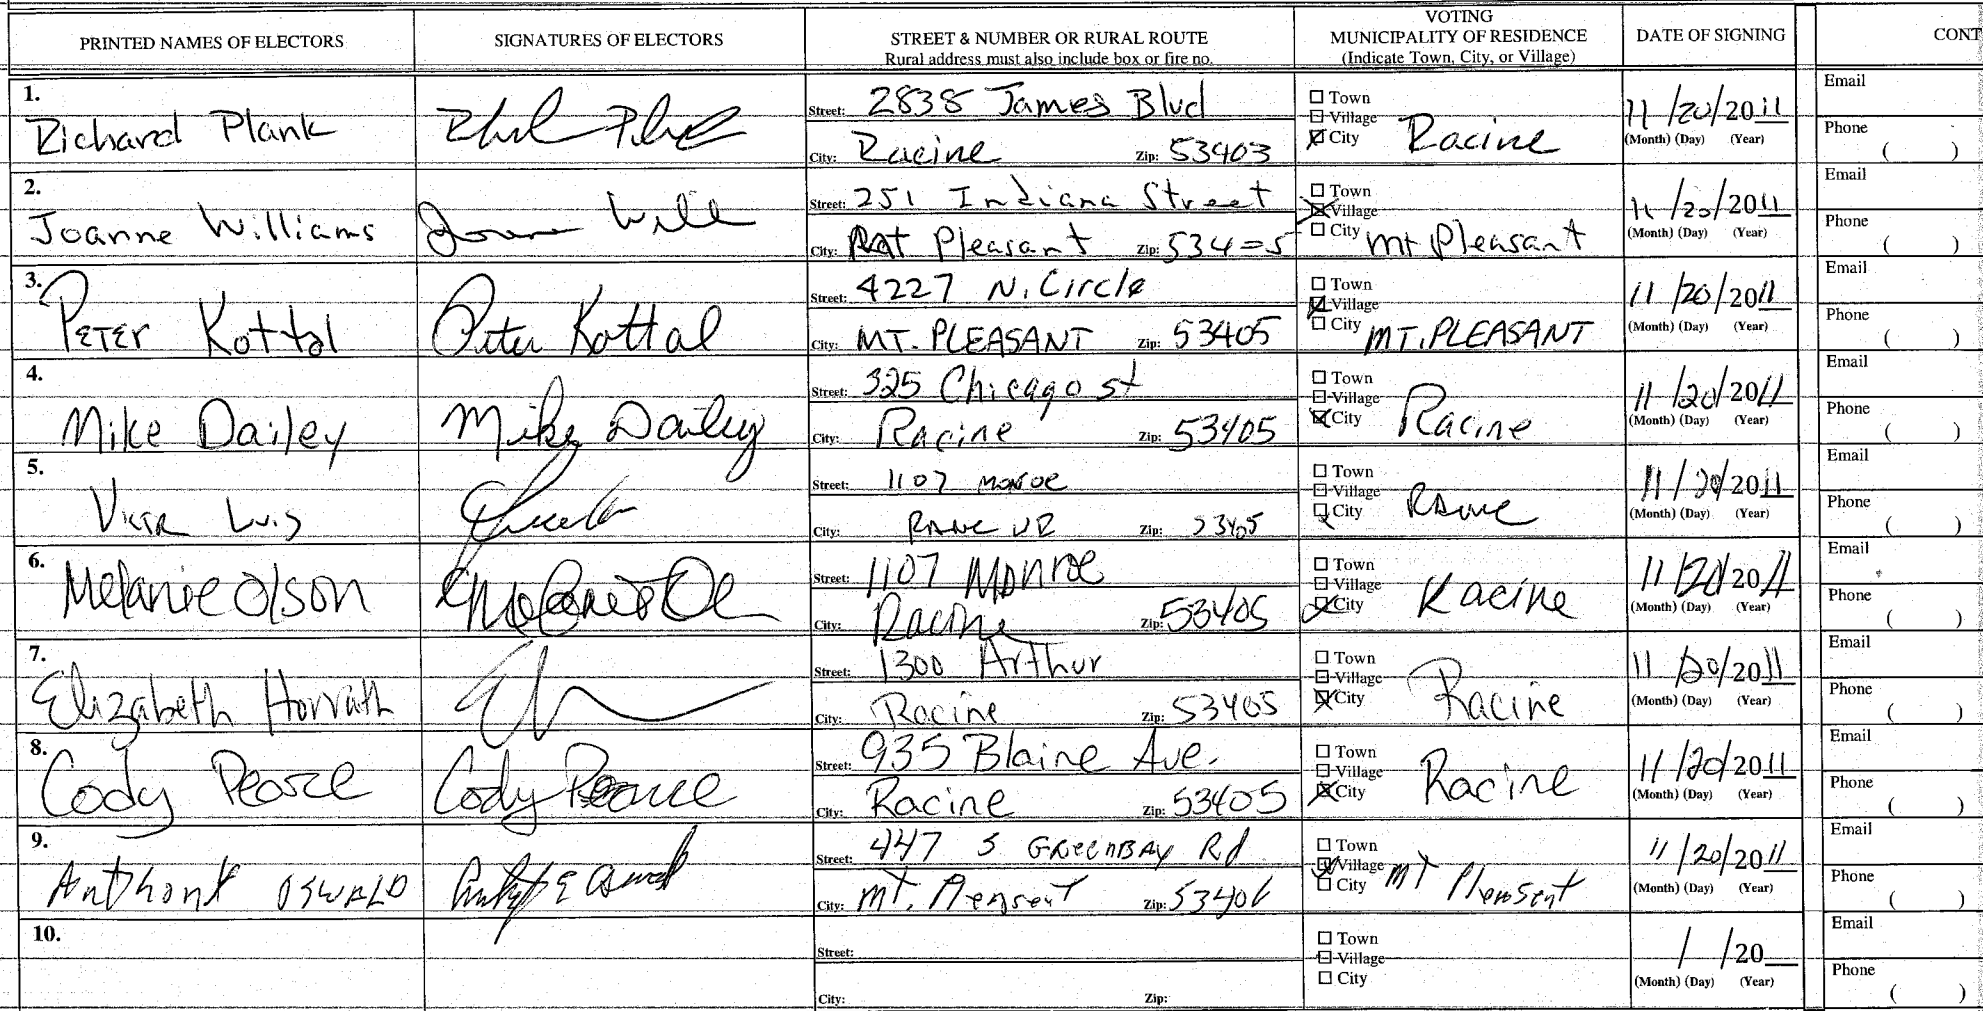 PRINTED NAMES OF ELECTORS
SIGNATURES OF ELECTORS
STREET & NUMBER OR RURAL ROUTE
Rural address must also include box or fire no.
VOTING
MUNICIPALITY OF RESIDENCE
(Indicate Town, City, or Village)
DATE OF SIGNING
CONT
1.
Richard Plank
Street: 2838 James Blvd
City: Racine Zip: 53403
Town
Village
City Racine
11/20/2011
(Month) (Day) (Year)
Email
Phone
( )
2.
Joanne Williams
Street: 251 Indiana Street
City: Mt Pleasant Zip: 53405
Town
Village
City Mt Pleasant
11/20/2011
(Month) (Day) (Year)
Email
Phone
( )
3.
PETER Kottal
Peter Kottal
Street: 4227 N. Circle
City: MT. PLEASANT Zip: 53405
Town
Village
City MT. PLEASANT
11/20/2011
(Month) (Day) (Year)
Email
Phone
( )
4.
Mike Dailey
Mike Dailey
Street: 325 Chicago st
City: Racine Zip: 53405
Town
Village
City Racine
11/20/2011
(Month) (Day) (Year)
Email
Phone
( )
5.
Luis
Street: 1107 Monroe
City: Zip: 53405
Town
Village
City
11/20/2011
(Month) (Day) (Year)
Email
Phone
( )
6.
Melanie Olson
Street: 1107 Monroe
City: Racine Zip: 53405
Town
Village
City Racine
11/20/2011
(Month) (Day) (Year)
Email
Phone
( )
7.
Elizabeth Horvath
Street: 1300 Arthur
City: Racine Zip: 53405
Town
Village
City Racine
11/20/2011
(Month) (Day) (Year)
Email
Phone
( )
8.
Cody Pearce
Cody Pearce
Street: 935 Blaine Ave.
City: Racine Zip: 53405
Town
Village
City Racine
11/20/2011
(Month) (Day) (Year)
Email
Phone
( )
9.
Anthony OSWALD
Street: 447 S GreenBAY Rd
City: Mt. Plensent Zip: 53406
Town
Village
City MT Plensent
11/20/2011
(Month) (Day) (Year)
Email
Phone
( )
10.
Street:
City: Zip:
Town
Village
City
/ /20
(Month) (Day) (Year)
Email
Phone
( )